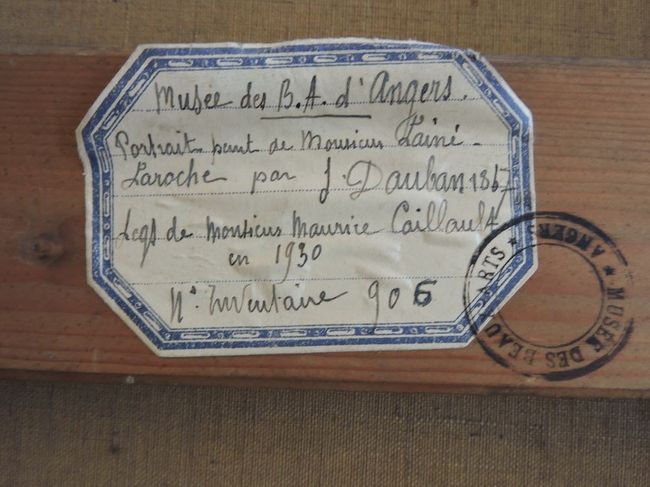 Musee des B.A. d'Angers.
Portrait peint de Monsieur Lainé-
Laroche par J. Dauban 1867
Legs de Monsieur Maurice Caillault
en 1930
N° Inventaire 906
MUSEE DES BEAUX ARTS ★ ANGERS ★